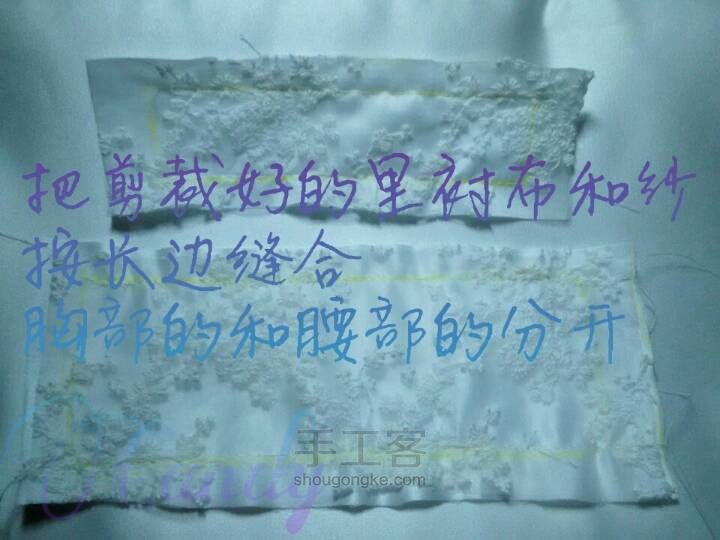 把剪裁好的里衬布和纱
按长边缝合
胸部的和腰部的分开
手工客
shougongke.com